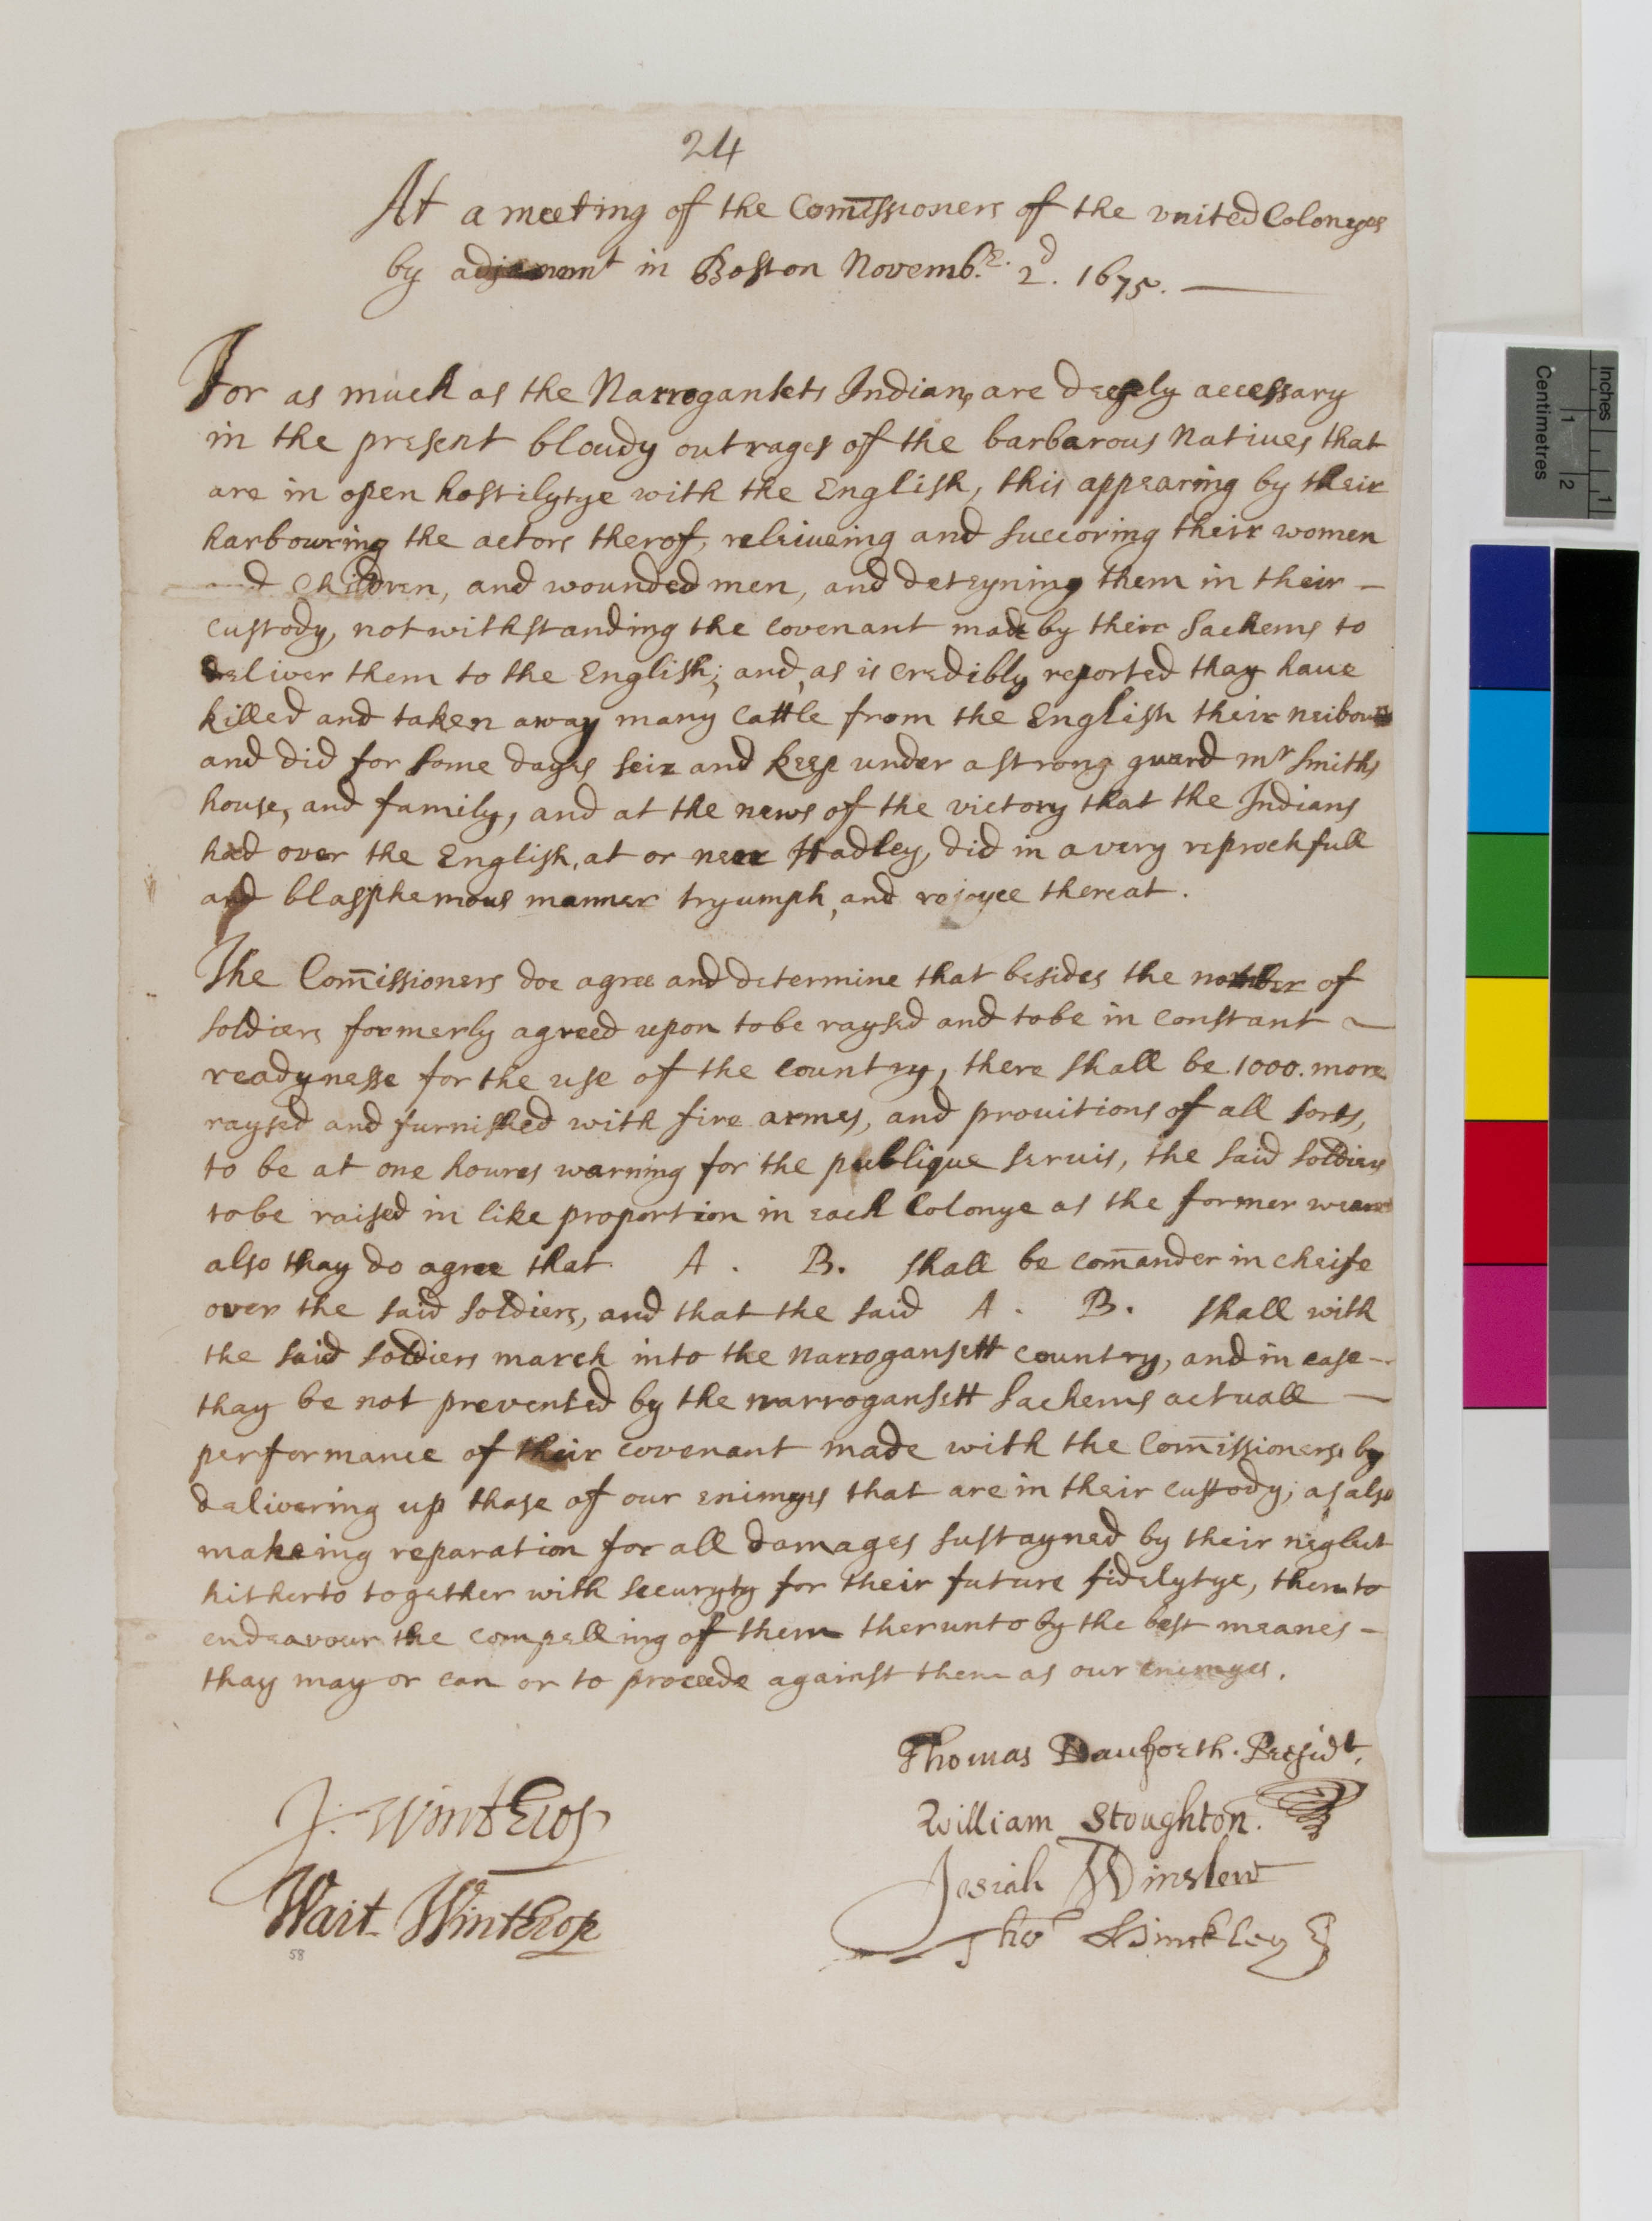 24
At a meeting of the Com̄issioners of the vnited Colonyes
by in Boston Novemb.r 2d. 1675.
For as much as the Narrogansets Indians, are deeply accessary
in the present bloudy outrages of the barbarous Natives that
are in open hostilytye with the English, this appearing by their
harbouring the actors therof, releiueing and succoring their women
and children, and wounded men, and deteyning them in their -
custody, notwithstanding the covenant made by their Sachems to
deliver them to the English; and, as is credibly reported thay haue
killed and taken away many cattle from the English their neibours
and did for some dayes seiz and keep under a strong guard mr Smiths
house, and family, and at the news of the victory that the Indians
had over the English, at or near Hadley, did in a very reprochfull
and blasphemous manner tryumph, and rejoyce thereat.
The Com̄issioners doe agree and determine that besides the number of
soldiers formerly agreed upon to be raysed and to be in constant -
readynesse for the use of the country, there shall be .1000. more
raysed and furnished with fire armes, and prouitions of all sorts,
to be at one houres warning for the publique seruis, the said soldiers
to be raised in like proportion in each Colonye as the former weare
also thay do agree that A . B. shall be com̄ander in cheife
over the said soldiers, and that the said A . B. shall with
the said soldiers march into the narrogansett country, and in case -
thay be not prevented by the narrogansett Sachems actuall -
performance of their covenant made with the Com̄issioners, by
delivering up those of our enimyes that are in their custody; as also
makeing reparation for all damages sustayned by their neglect
hitherto together with securyty for their future fidelytye, then to
endeavour the compelling of them therunto by the best meanes -
thay may or can or to proceede against them as our enimyes.
Thomas Danforth. Presidt.
J. Winthrop
William Stoughton.
Josiah Winslow
Wait Winthrop
Tho Hinckley
58
Inches
1
Centimetres
1
2